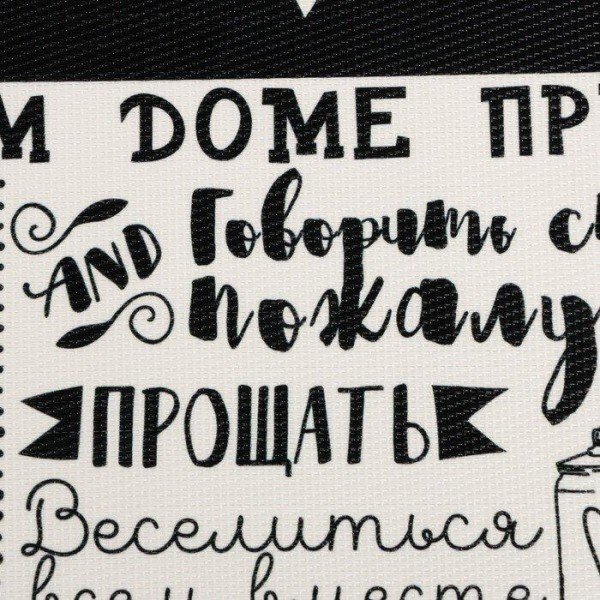 М ДОМЕ ПР
AND Говорить с
пожалу
ПРОЩАТЬ
Веселиться
всем вместе